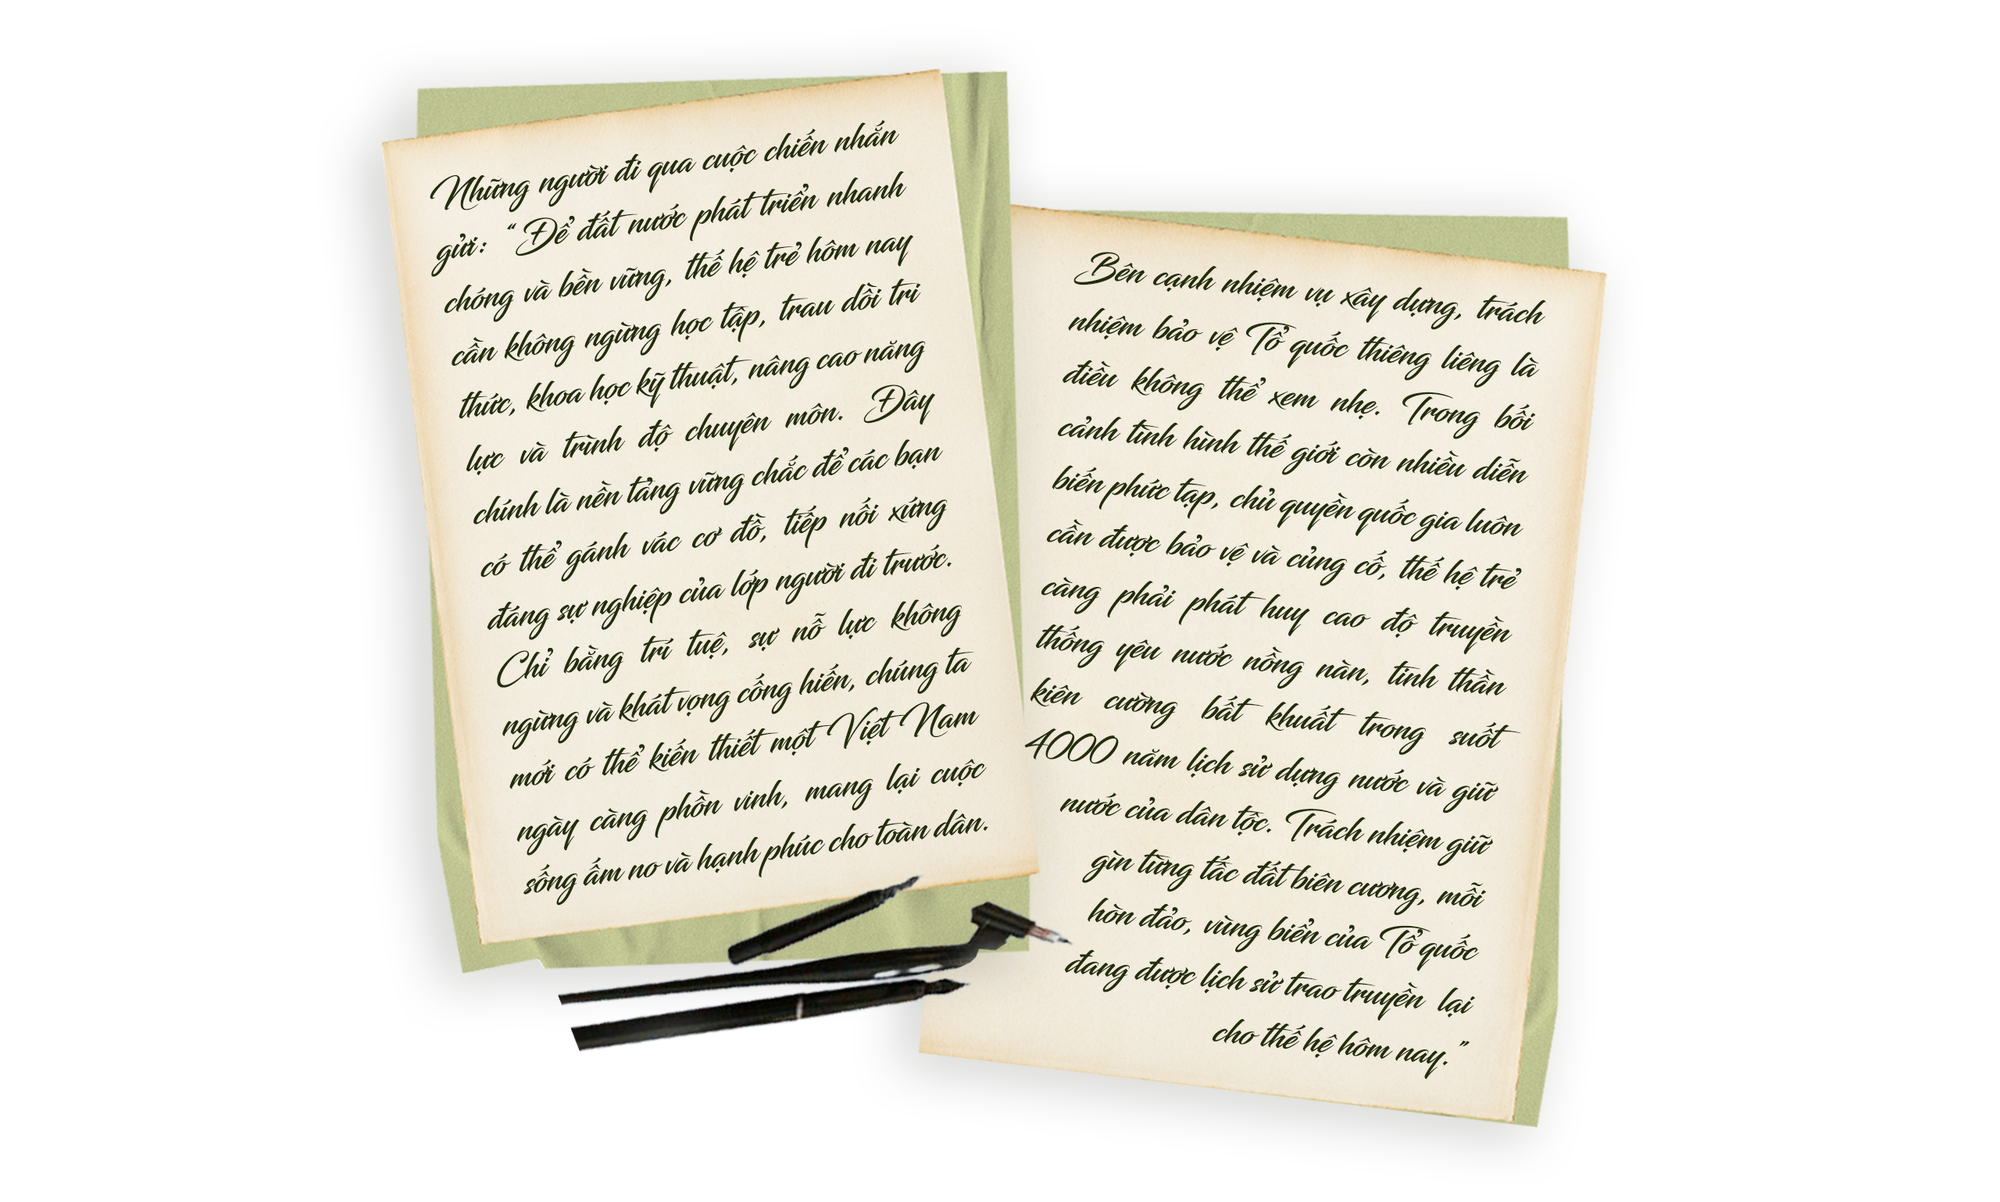 Những người đi qua cuộc chiến nhắn
gửi: “Để đất nước phát triển nhanh
chóng và bền vững, thế hệ trẻ hôm nay
cần không ngừng học tập, trau dồi tri
thức, khoa học kỹ thuật, nâng cao năng
lực và trình độ chuyên môn. Đây
chính là nền tảng vững chắc để các bạn
có thể gánh vác cơ đồ, tiếp nối xứng
đáng sự nghiệp của lớp người đi trước.
Chỉ bằng trí tuệ, sự nỗ lực không
ngừng và khát vọng cống hiến, chúng ta
mới có thể kiến thiết một Việt Nam
ngày càng phồn vinh, mang lại cuộc
sống ấm no và hạnh phúc cho toàn dân.
Bên cạnh nhiệm vụ xây dựng, trách
nhiệm bảo vệ Tổ quốc thiêng liêng là
điều không thể xem nhẹ. Trong bối
cảnh tình hình thế giới còn nhiều diễn
biến phức tạp, chủ quyền quốc gia luôn
cần được bảo vệ và củng cố, thế hệ trẻ
càng phải phát huy cao độ truyền
thống yêu nước nồng nàn, tinh thần
kiên cường bất khuất trong suốt
4000 năm lịch sử dựng nước và giữ
nước của dân tộc. Trách nhiệm giữ
gìn từng tấc đất biên cương, mỗi
hòn đảo, vùng biển của Tổ quốc
đang được lịch sử trao truyền lại
cho thế hệ hôm nay.”